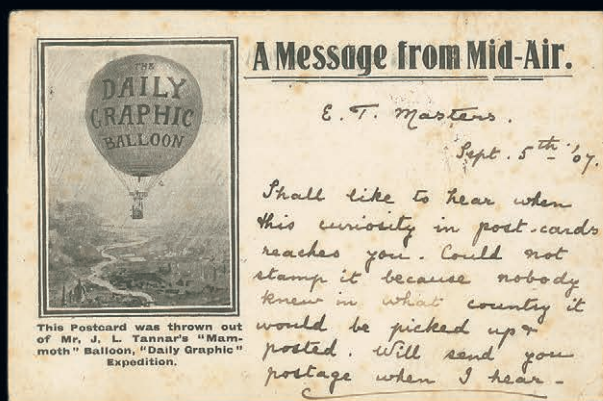 THE
DAILY
GRAPHIC
BALLOON
This Postcard was thrown out
of Mr. J. L. Tannar's "Mam-
moth" Balloon, "Daily Graphic"
Expedition.
A Message from Mid-Air.
E. T. Masters.
Sept. 5th '07.
Shall like to hear when
this curiosity in post-cards
reaches you. Could not
stamp it because nobody
knew in what country it
would be picked up &
posted. Will send you
postage when I hear -